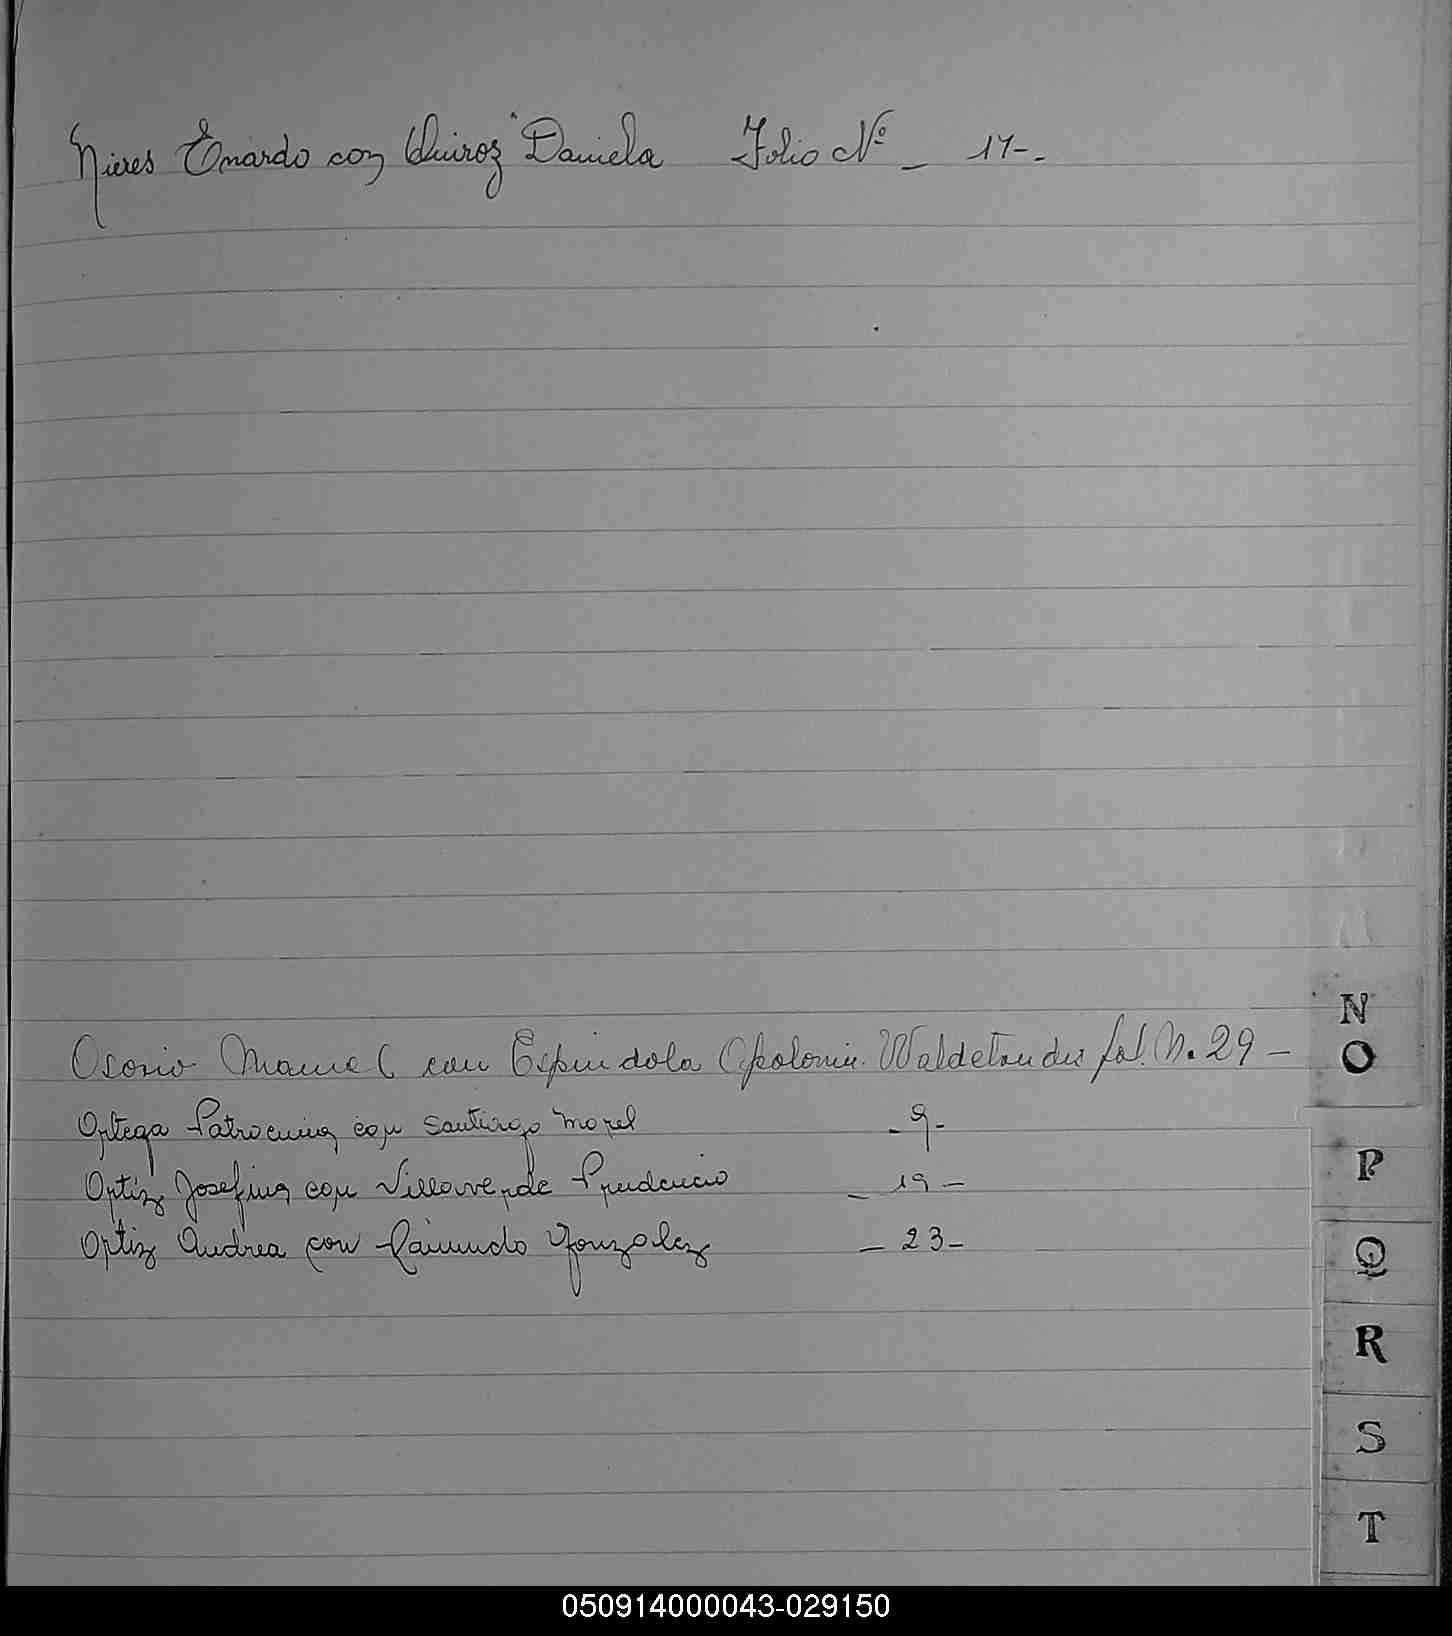 Nieres Enardo con Quiroz Daniela Folio Nº - 17-.
Osorio Manuel con Espindola Apolonia fol. N. 29 -
Ortega Patrocinia con Santiago Morel - 9 -
Ortiz Josefina con Villaverde Prudencio - 19 -
Ortiz Andrea con Raimundo Gonzalez - 23 -
N
O
P
Q
R
S
T
050914000043-029150